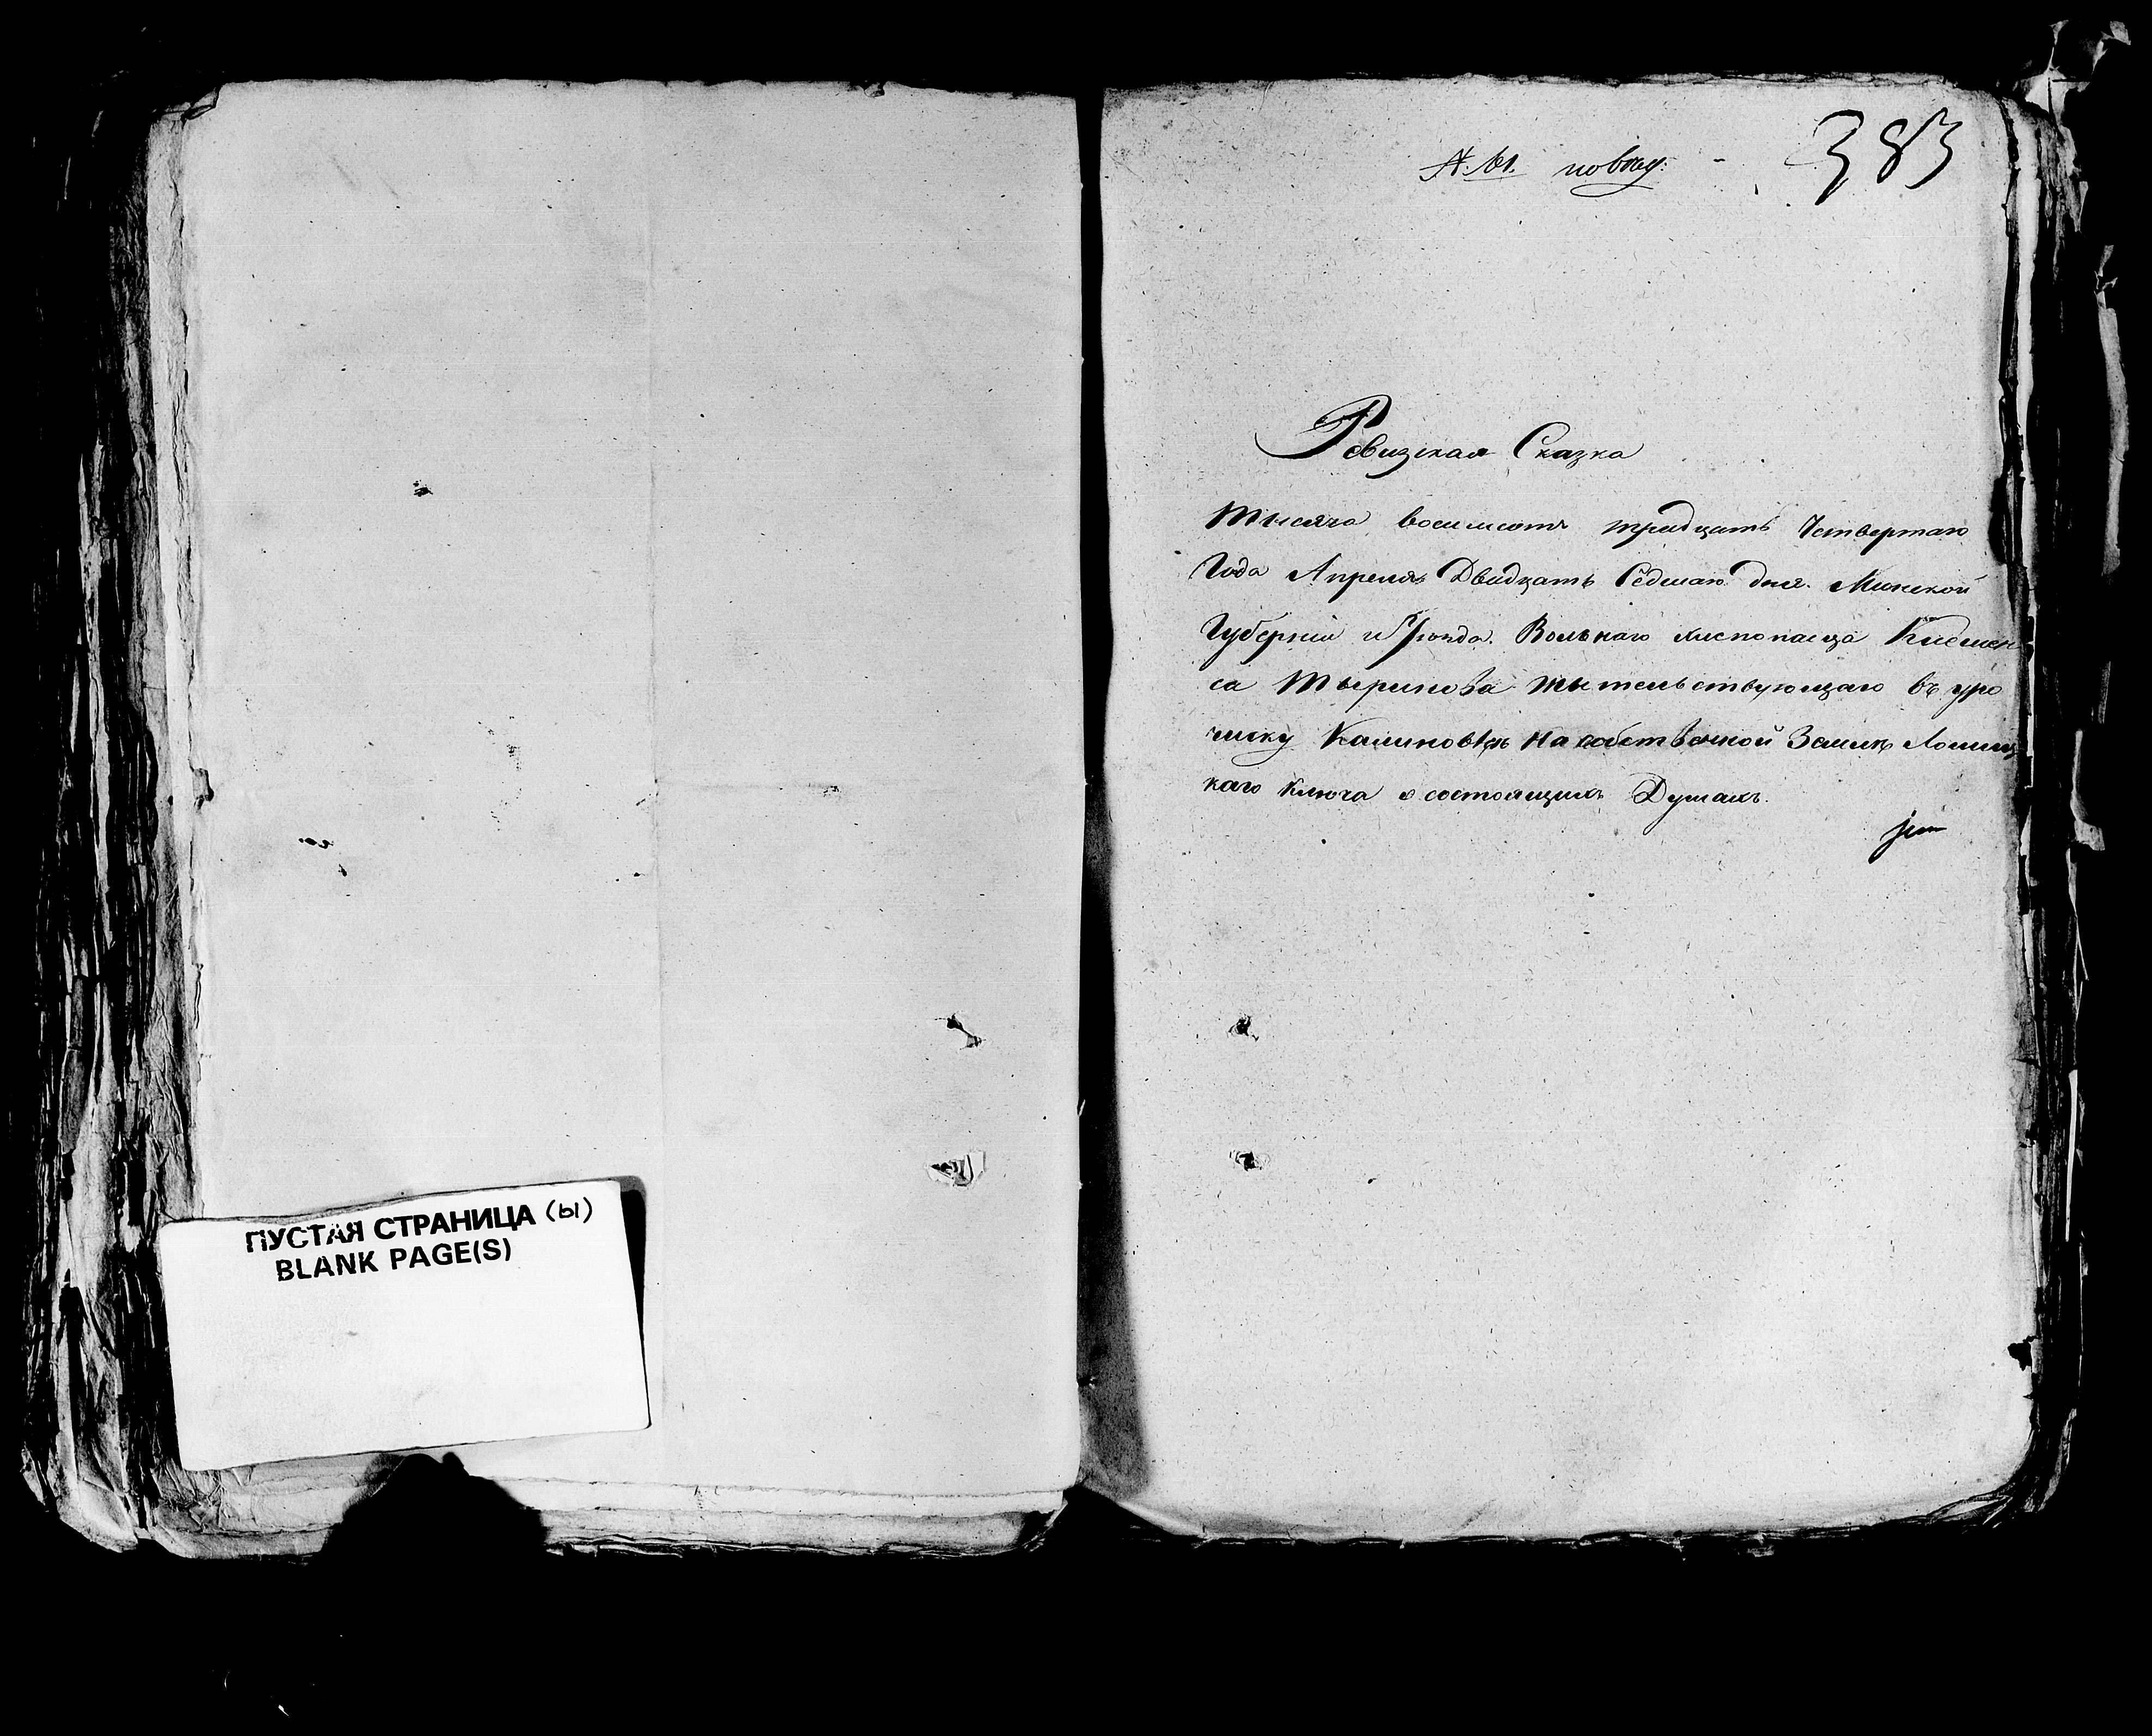 ПУСТАЯ СТРАНИЦА (ы)
BLANK PAGE(S)
383
Ревизская Сказка
Тысяча восимсотъ тридцать Четвертаго
Года Апреля Двадцать Седмаго дня. Минской
Губерніи и Уѣзда. Вольнаго хлепопашца
са жытельствующаго въ уро
чиску Калиновкѣ на собственной Землѣ
каго Ключа о состоящихъ Душахъ.